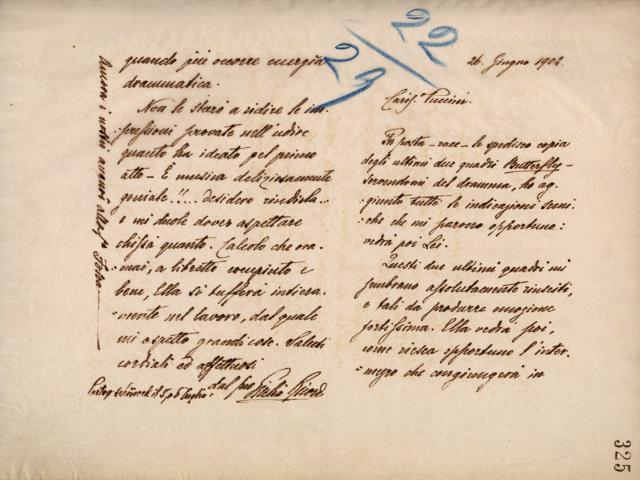 22/29
26. Giugno 1902.
Cariss.º Puccini.
In posta - racc - le spedisco copia
degli ultimi due quadri Butterfly -
Servendomi del dramma, ho ag-
giunto tutte le indicazioni sceni-
che che mi parvero opportune:
vedrà poi Lei.
Questi due ultimi quadri mi
sembrano assolutamente riusciti,
e tali da produrre emozione
fortissima. Ella vedrà poi,
come riesca opportuno l'inter-
mezzo che congiungerà in
quando più occorre energia
drammatica.
Non le starò a ridire le im-
pressioni provate nell'udire
quanto ha ideato pel primo
atto - È musica deliziosamente
geniale!!.... desidero riudirla...
e mi duole dover aspettare
chissà quanto. Calcolo che ora-
mai, a libretto compiuto e
bene, Ella si tufferà intiera-
mente nel lavoro, dal quale
mi aspetto grandi cose. Saluti
cordiali ed affettuosi
dal suo Giulio Ricordi
il 5, o 6 luglio!
Ancora i nostri auguri alla
325